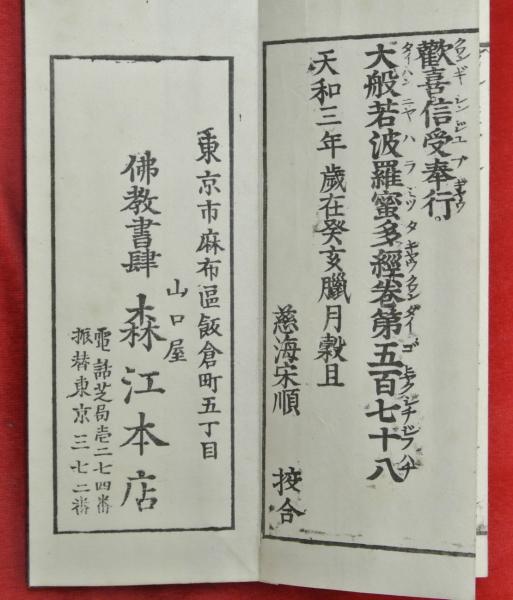 歡喜信受奉行
クワンギシンジユブギヤウ
大般若波羅蜜多經卷第五百七十八
天和三年歲在癸亥臘月穀旦
慈海宋順 挍合
東京市麻布區飯倉町五丁目
山口屋
佛教書肆 森江本店
電話芝局壱二七四番
振替東京三七二番